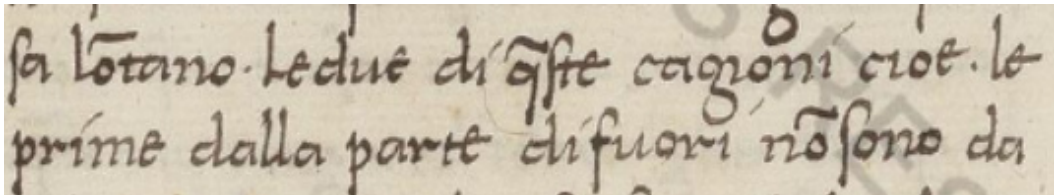 sa lōtano. Le due di q̄ste cagioni cioe. le
prime dalla parte di fuori nō sono da